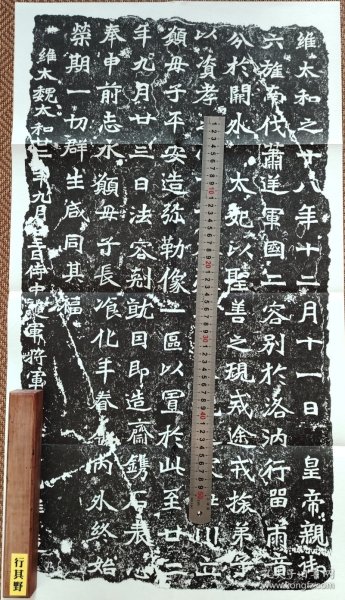 維太和之十八年十二月十一日皇帝親御
六旌南伐蕭逆軍國二容別於洛汭行留兩音
分於闕外太妃以聖善之規戒途戒旅弟子
以資孝川立
願母子平安造弥勒像一區以置於此至廿二
年九月廿三日法容剋就因即造齋鐫石表心
奉申前志永願母子長飡化年眷內外終始
榮期一切群生咸同其福
維大魏太和廿二年九月廿三日侍中護軍將軍
行其野